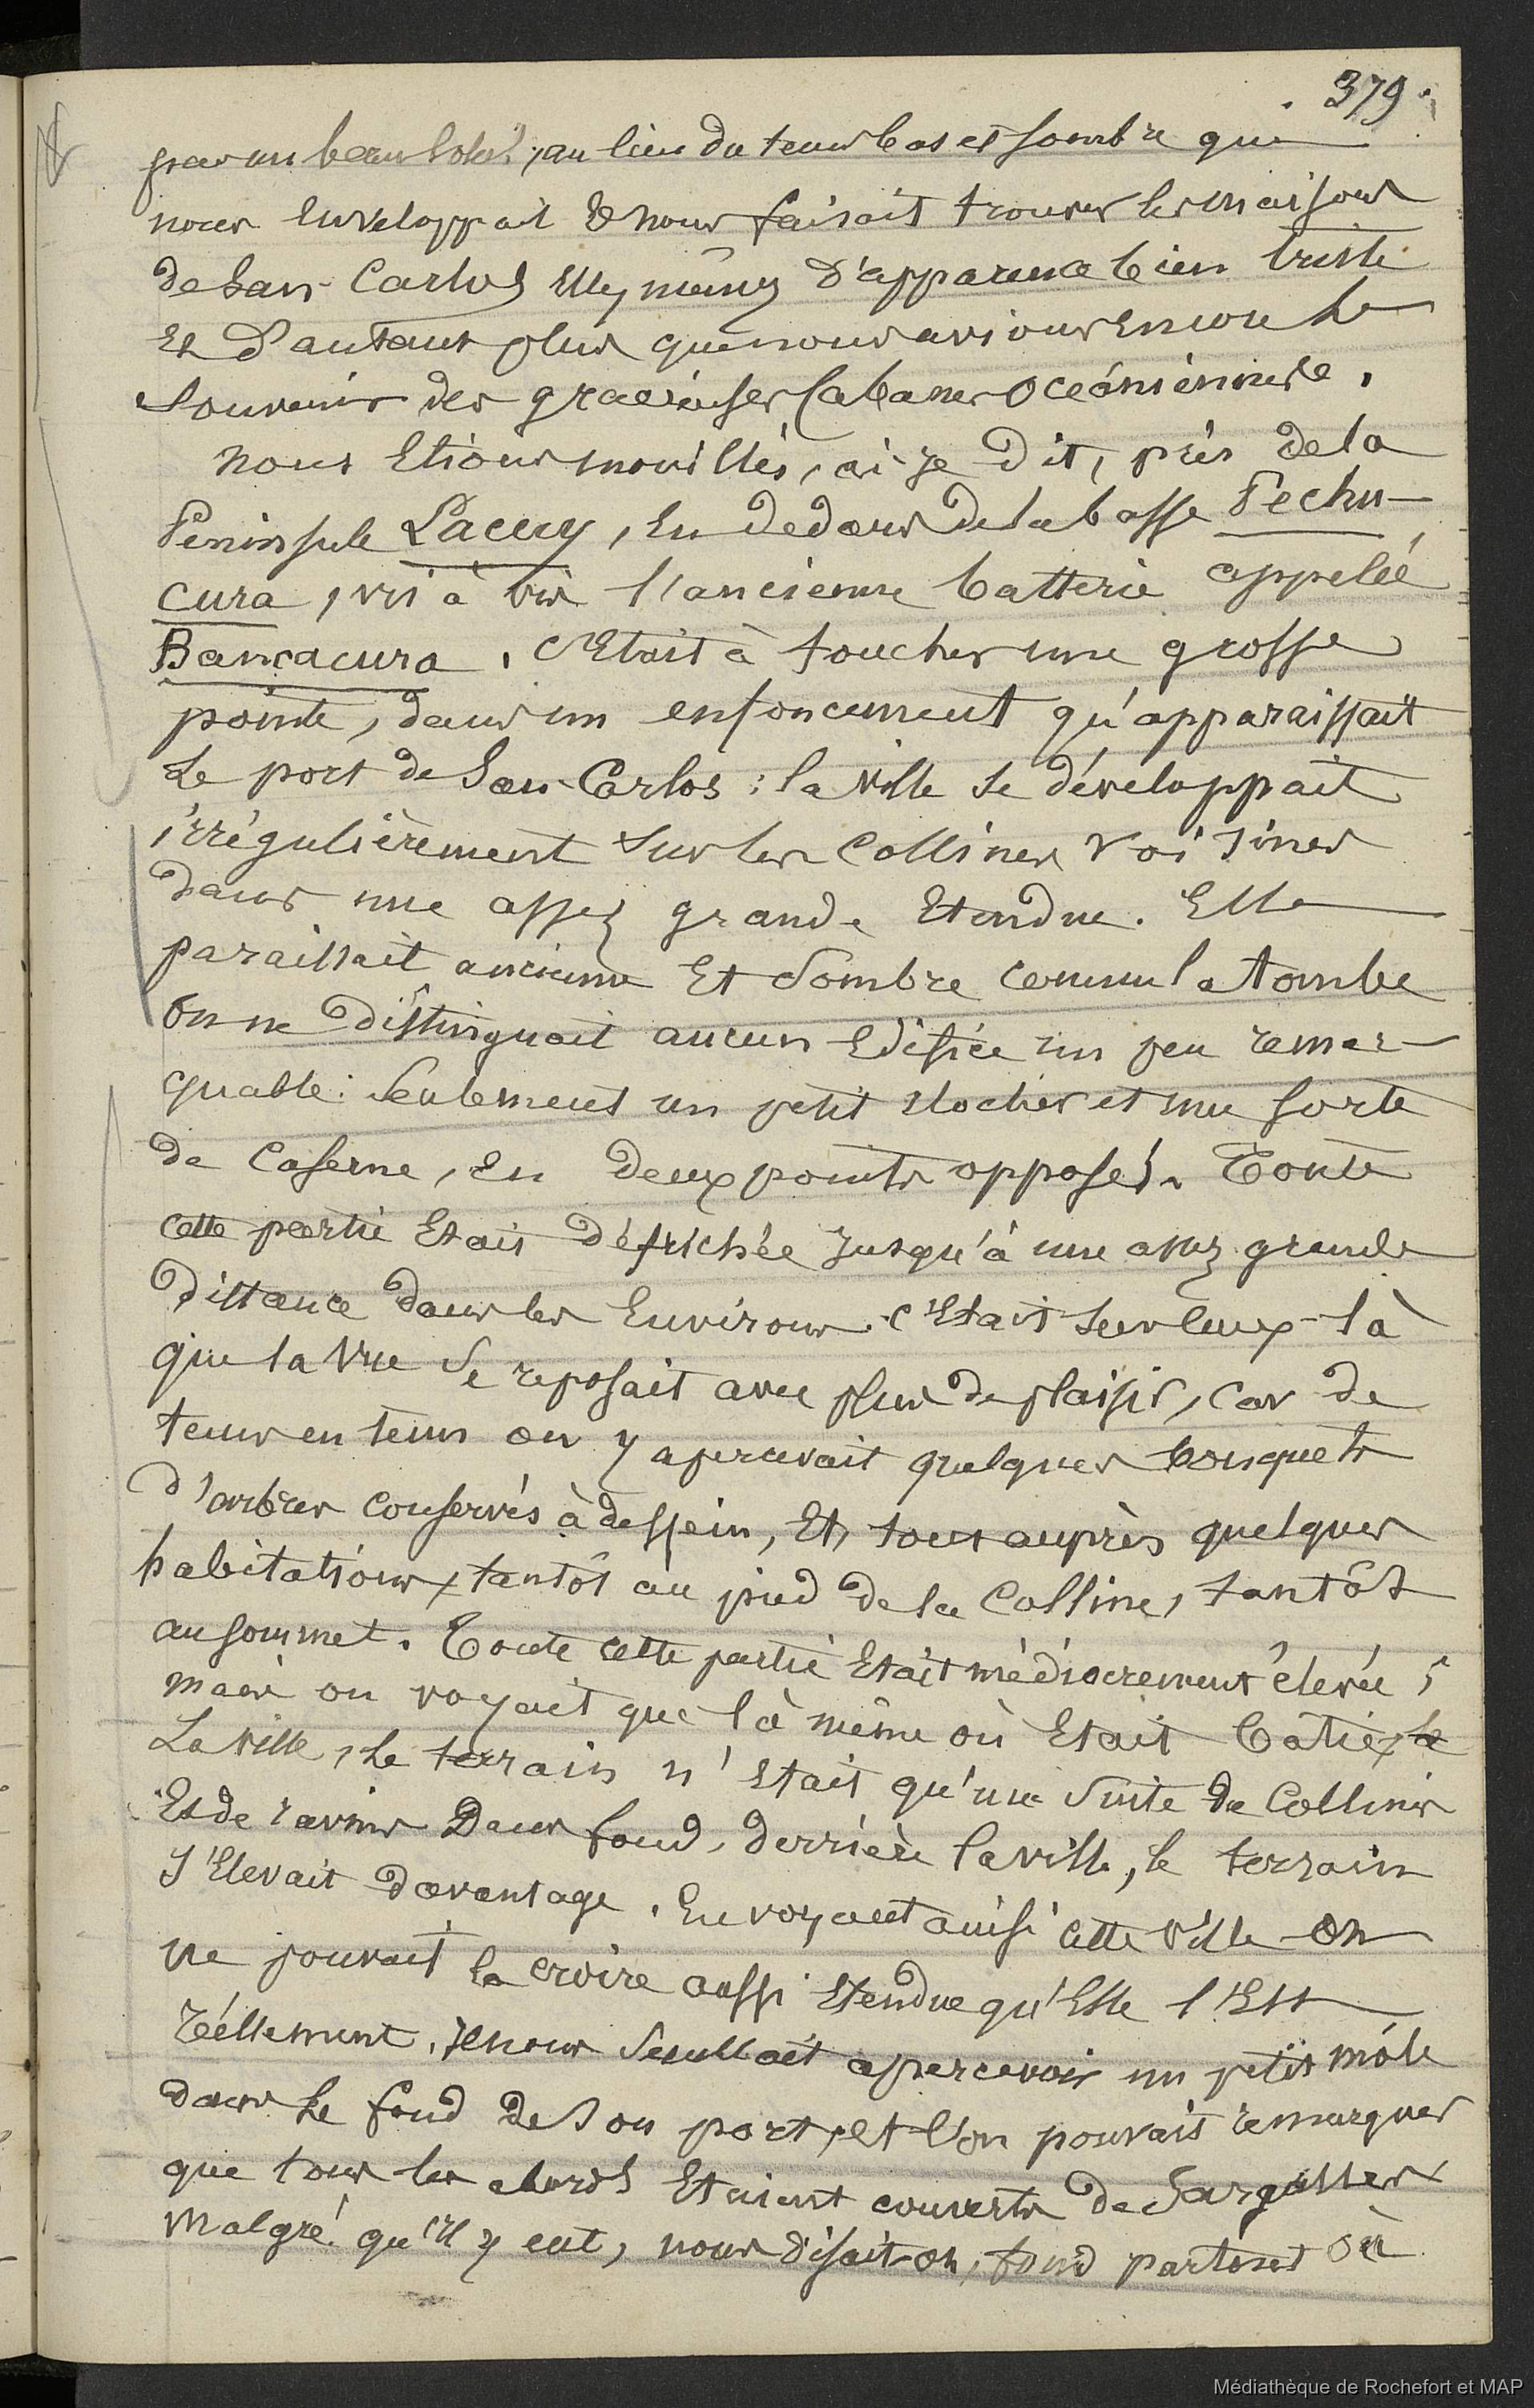 . 379.
par un beau soleil, au lieu du tems bas et sombre qui
nous enveloppait & nous faisait trouver les maisons
de San-Carlos elles mêmes d'apparence bien triste
et d'autant plus que nous avions encore le
souvenir des gracieuses cabanes océaniennes.
nous étions mouillés, ai-je dit, près de la
Péninsule Lacuy, en dedans de la basse Pechu-
cura, vis à vis l'ancienne batterie appelée
Barcacura. c'était à toucher une grosse
pointe, dans un enfoncement qu'apparaissait
le port de San-Carlos : la ville se développait
irrégulièrement sur les collines voisines
dans une assez grande étendue. Elle
paraissait ancienne et sombre comme la tombe
on ne distinguait aucun édifice un peu remar-
quable : seulement un petit clocher et une sorte
de caserne, en deux points opposés. Toute
cette partie était défrichée jusqu'à une assez grande
distance dans les environs. c'était sur ceux-là
que la vue se reposait avec plus de plaisir, car de
tems en tems on y apercevait quelques bouquets
d'arbres conservés à dessein, et, tout auprès quelques
habitations, tantôt au pied de la colline, tantôt
au sommet. Toute cette partie était médiocrement élevée ;
mais on voyait que là même où était bâtie
La ville, le terrain n'était qu'une suite de collines
et de ravins Dans fond, derrière la ville, le terrain
s'élevait davantage. En voyant ainsi cette ville on
ne pouvait la croire aussi étendue qu'elle l'est
réellement. Il nous semblait apercevoir un petit môle
dans le fond de son port, et l'on pouvait remarquer
que tous les abords étaient couverts de Sargasses
Malgré qu'il y eut, nous disait-on, fond partout où
Médiathèque de Rochefort et MAP